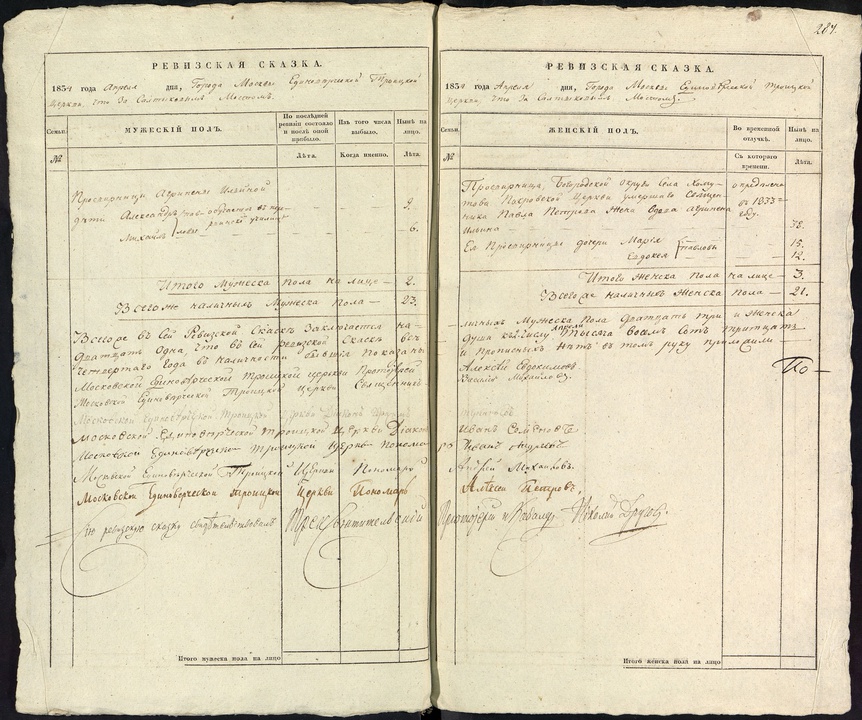 РЕВИЗСКАЯ СКАЗКА.
1834 года Апреля дня, Города Москвы Единоверческой Троицкой
Церкви, что за Салтыковымъ Мостомъ.
Семьи.
МУЖЕСКІЙ ПОЛЪ.
По последней ревизіи состояло и послѣ оной прибыло.
Изъ того числа выбыло.
Нынѣ на лицо.
№
Лѣта.
Когда именно.
Лѣта.
Просвирницы Агрипены Ильиной
дѣти Александръ обучается въ 9.
Михаилъ Павловы училищѣ 6.
Итого Мужеска пола на лице — 2.
Всего же наличныхъ Мужеска Пола — 23.
Всего же въ сей Ревизской Сказкѣ Заключается на=
дватцать Одна, что въ сей ревизской Сказкѣ всѣ
четвертаго года въ наличности бывшіе Показаны
Московской Единовѣрческой Троицкой церкви Протоіерей
Московской Единоверческой Троицкой Церкви Священникъ
Московской Единоверческой Троицкой Церкви Діаконъ
Московской Единовѣрческой Троицкой Церкви Діаконъ
Московской Единовѣрческой Троицкой Церкви Понома
Московской Единовѣрческой Троицкой Церкви Пономарь
Московской Единоверческой Троицкой Церкви Пономарь
Сію ревизскую сказку свидѣтельствовалъ
Итого мужеска пола на лицо
284.
РЕВИЗСКАЯ СКАЗКА.
1834 года Апреля дня, Города Москвы Единоверческой Троицкой
Церкви, что за Салтыковымъ Мостомъ.
Семьи.
ЖЕНСКІЙ ПОЛЪ.
Во временной отлучкѣ.
Нынѣ на лицо.
№
Съ котораго времени.
Лѣта.
Просвирница, Богородской округи Села
Покровской Церкви умершаго Священ=
ника Павла Петрова жена вдова Агрипена
Ильина 38.
определена
въ 1833=
году.
Ея Просвирницы дочери Марія Павловы 15.
Евдокея 12.
Итого Женска пола на лице — 3.
Всего же наличныхъ Женска пола — 21.
личныхъ Мужеска Пола дватцать три и Женска
Апреля тысяча восемь сотъ тритцать
и прописныхъ нѣтъ въ томъ руку приложили
Алексѣй Евдокимовъ
Василій Михайловъ
По —
Иванъ Семеновъ
рь Иванъ Андреевъ
Андрей Михаиловъ.
Алѣксѣй Петровъ,
Протоіерей и Кавалеръ Николай Друговъ.
Итого женска пола на лицо